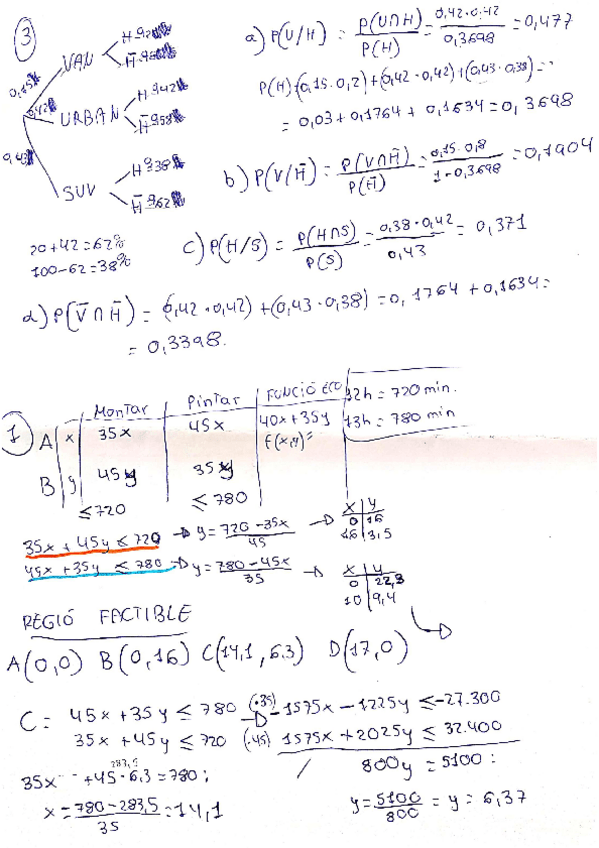 3
VAN H 0.20 H̄ 0.80
0,15 0,42 0,43
URBAN H 0.42 H̄ 0.58
SUV H 0.38 H̄ 0.62
20+42=62%
100-62=38%
a) P(U/H) = P(U∩H)/P(H) = 0,42·0,42/0,3698 = 0,477
P(H)=(0,15·0,2)+(0,42·0,42)+(0,43·0,38)=
= 0,03+0,1764+0,1634=0,3698
b) P(V/H̄) = P(V∩H̄)/P(H̄) = 0,15·0,8/1-0,3698 = 0,1904
c) P(H/S) = P(H∩S)/P(S) = 0,38·0,42/0,43 = 0,371
d) P(V̄∩H̄) = (0,42·0,42)+(0,43·0,38)=0,1764+0,1634=
= 0,3398.
1
Montar Pintar FUNCIÓ ECO 12h = 720 min.
A x 35x 45x 40x+35y 13h = 780 min
f(x,y)=
B y 45y 35y
≤720 ≤780
35x+45y≤720 → y=720-35x/45 →
x y
0 16
16 3,5
45x+35y≤780 → y=780-45x/35 →
x y
0 22,3
10 9,4
REGIÓ FACTIBLE
A(0,0) B(0,16) C(14,1,6.3) D(17,0)
C= 45x+35y≤780 (·35) → -1575x-1225y≤-27.300
35x+45y≤720 (·45) 1575x+2025y≤32.400
283,5
35x +45·6,3=780;
800y=5100:
x=780-283,5/35=14,1
y=5100/800=y=6,37